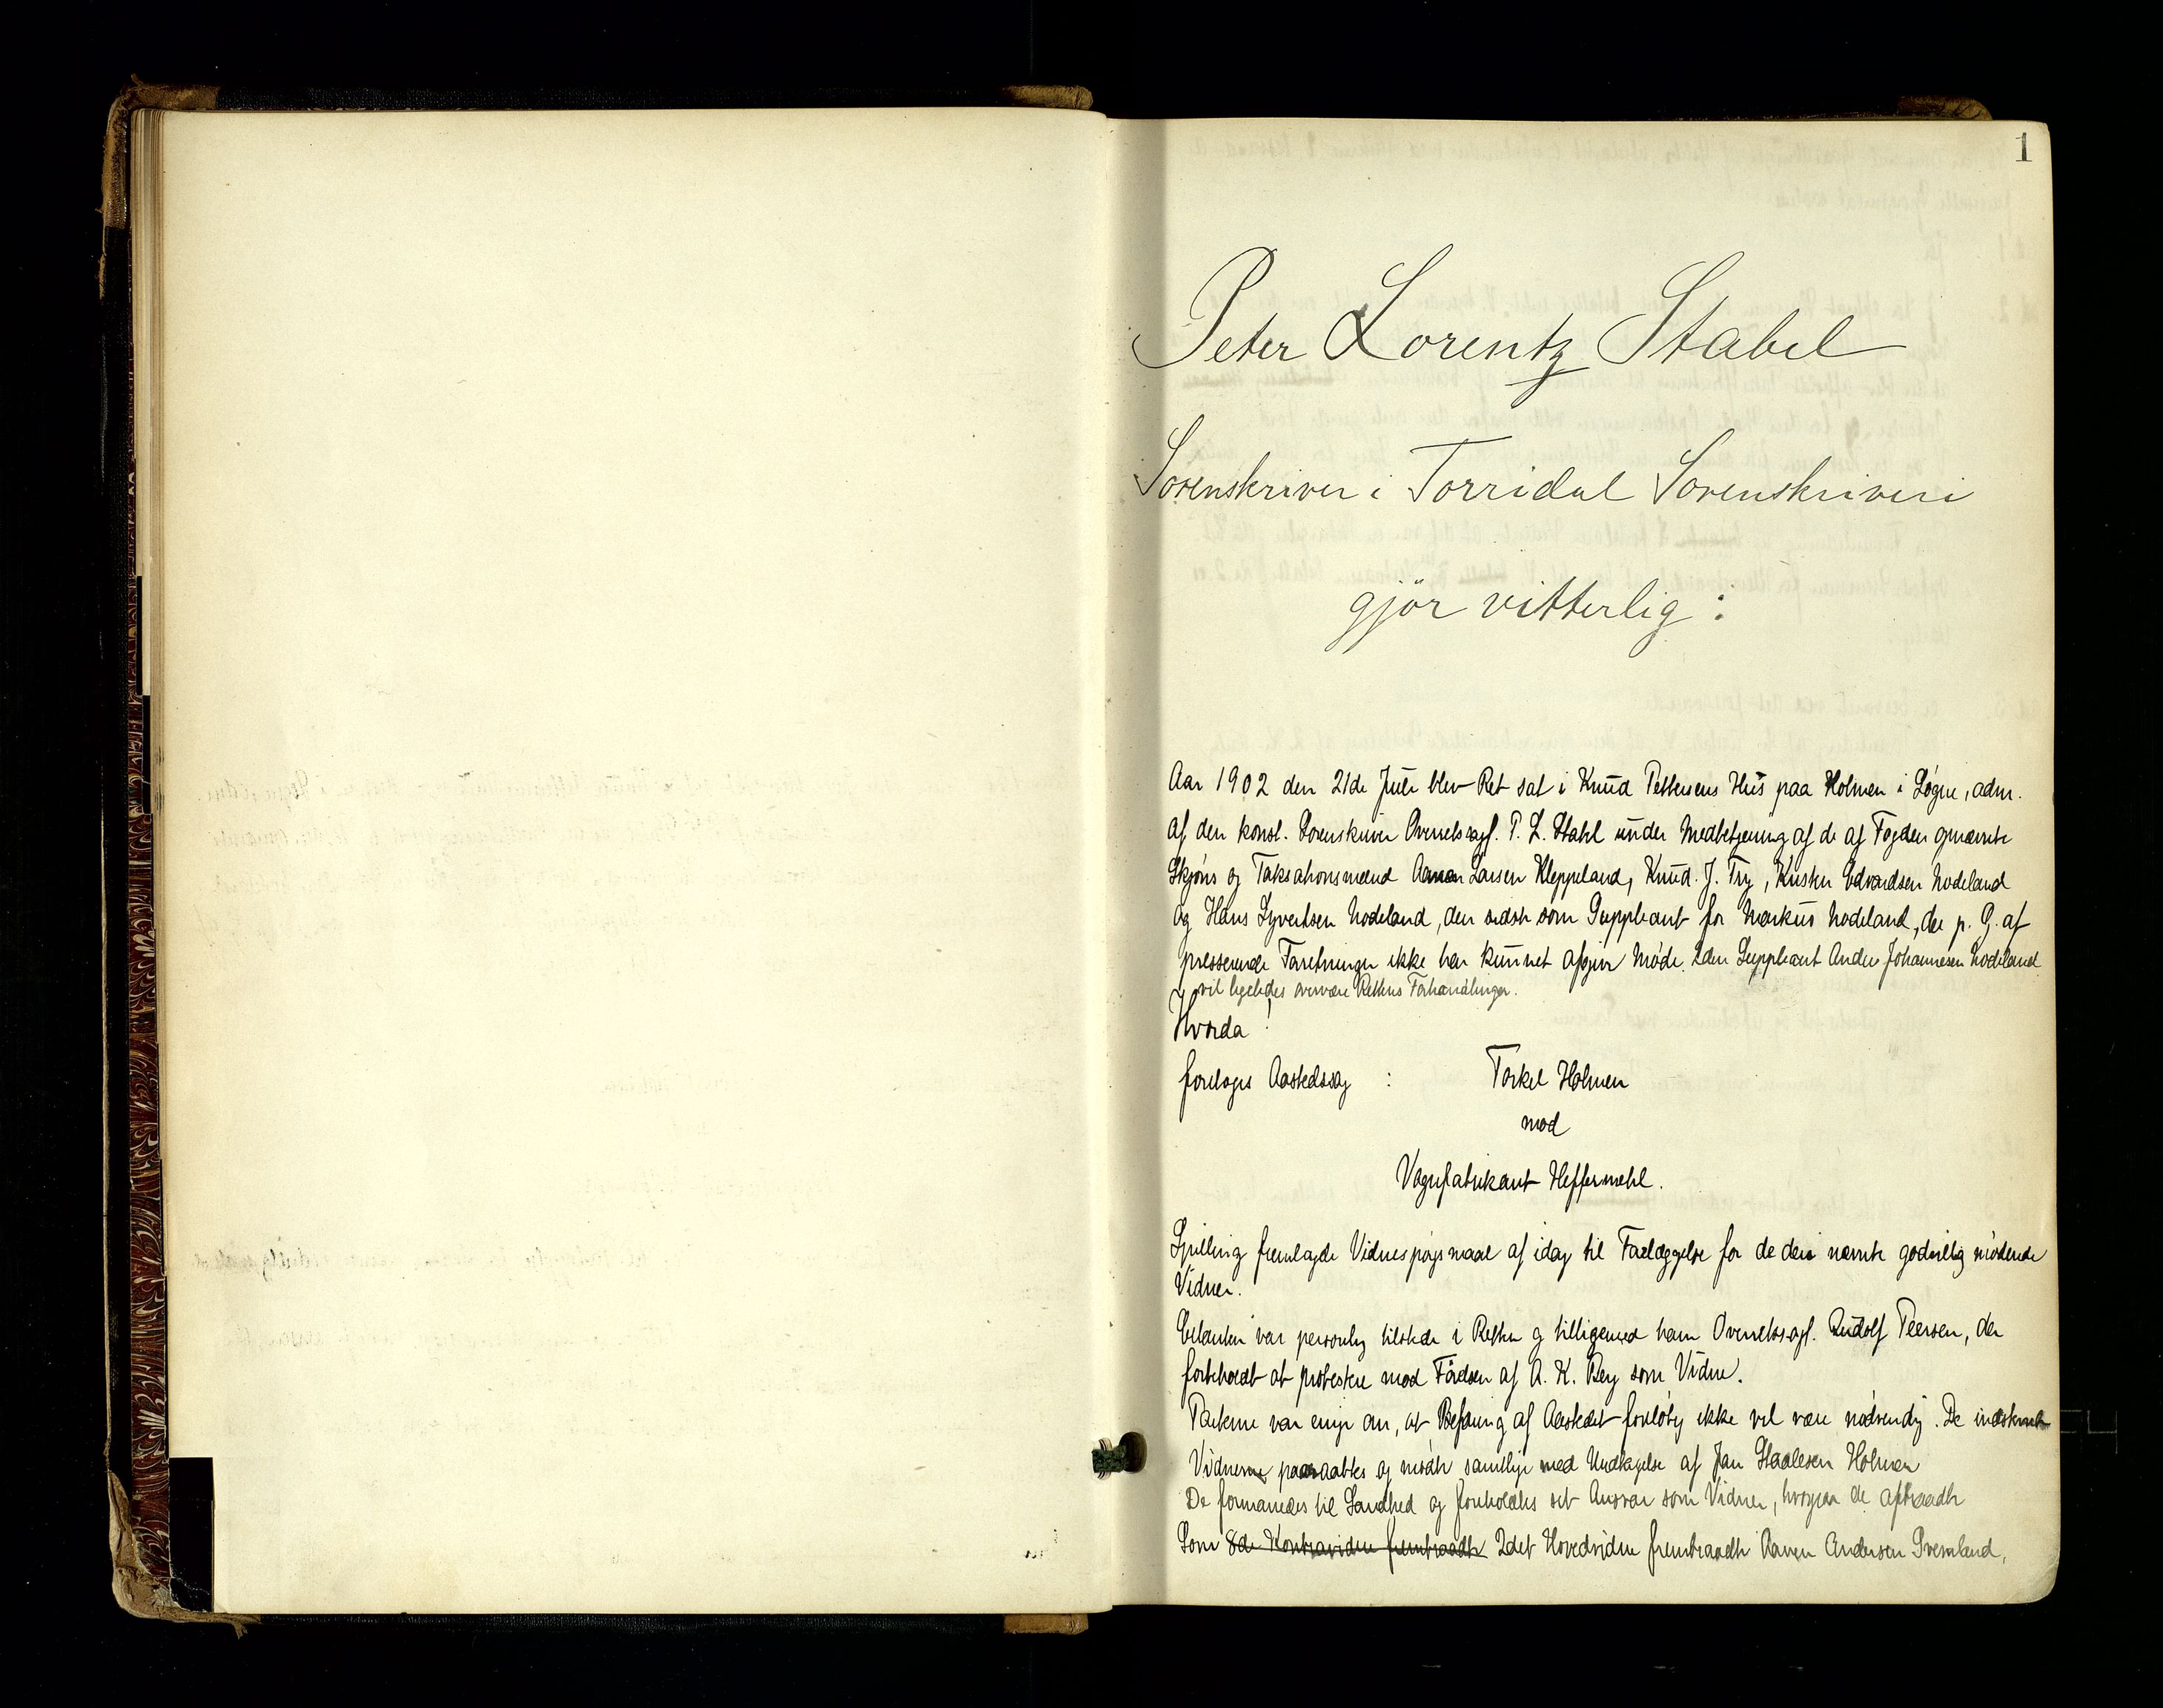 1
Peter Lorentz Stabel
Sorenskriver i Torridal Sorenskriveri
gjör vitterlig:
Aar 1902 den 21de Juli blev Ret sat i Knud Pettersens Hus paa Holmen i Søgne, adm.
af den konst. Sorenskriver Overretssagf. P. L. Stabel under Medbetjening af de af Fogden opnævnte
Skjøns og Taksationsmænd Aanen Larsen Kleppeland, Knud J. Try, Kristen Edvardsen Nodeland
og Hans Syvertsen Nodeland, den sidste som Suppleant for Markus Nodeland, der p. G. af
presserende Forretninger ikke har kunnet afgive Møde. 2den Suppleant Anders Johannesen Nodeland
vil ligeledes overvære Rettens Forhandlinger.
Hvorda!
foretoges Aastedssag : Torkel Holmen
mod
Vognfabrikant Heffermehl.
Spilling fremlagde Vidnespørgsmaal af idag til Forelæggelse for de deri nævnte godvillig mødende
Vidner.
Citanten var personlig tilstede i Retten og tilligemed ham Overretssagf. Rudolf Peersen, der
forbeholdt at protestere mod Førelsen af A. K. Berg som Vidne.
Parterne var enige om, at Befaring af Aastedet foreløbig ikke vil være nødvendig. De indstævnte
Vidnerne paaraabtes og mødte samtlige med Undtagelse af Jan Staalesen Holmen
De formanedes til Sandhed og foreholdtes sit Ansvar som Vidner, hvorpaa de aftraadte
Som 8de Kontravidne fremtraadte 2det Hovedvidne fremtraadte Aanen Andersen